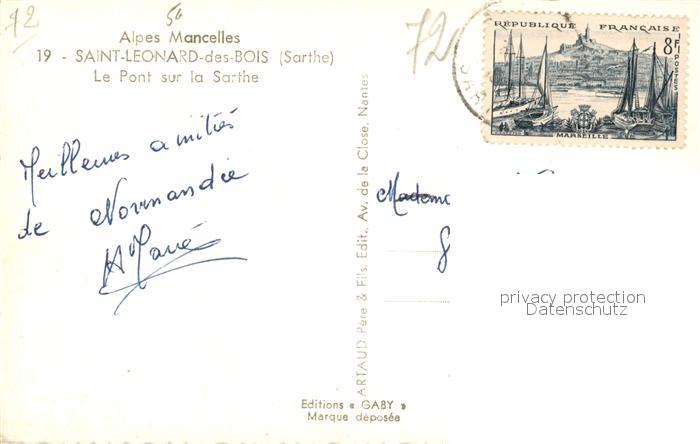 72
56
Alpes Mancelles
19 - SAINT-LEONARD-des-BOIS (Sarthe)
Le Pont sur la Sarthe
72
RÉPUBLIQUE FRANÇAISE
8F
POSTES
MARSEILLE
Meilleures amitiés
de Normandie
ARTAUD Père & Fils. Edit., Av. de la Close, Nantes
Mademo
8
privacy protection
Datenschutz
Editions « GABY »
Marque déposée